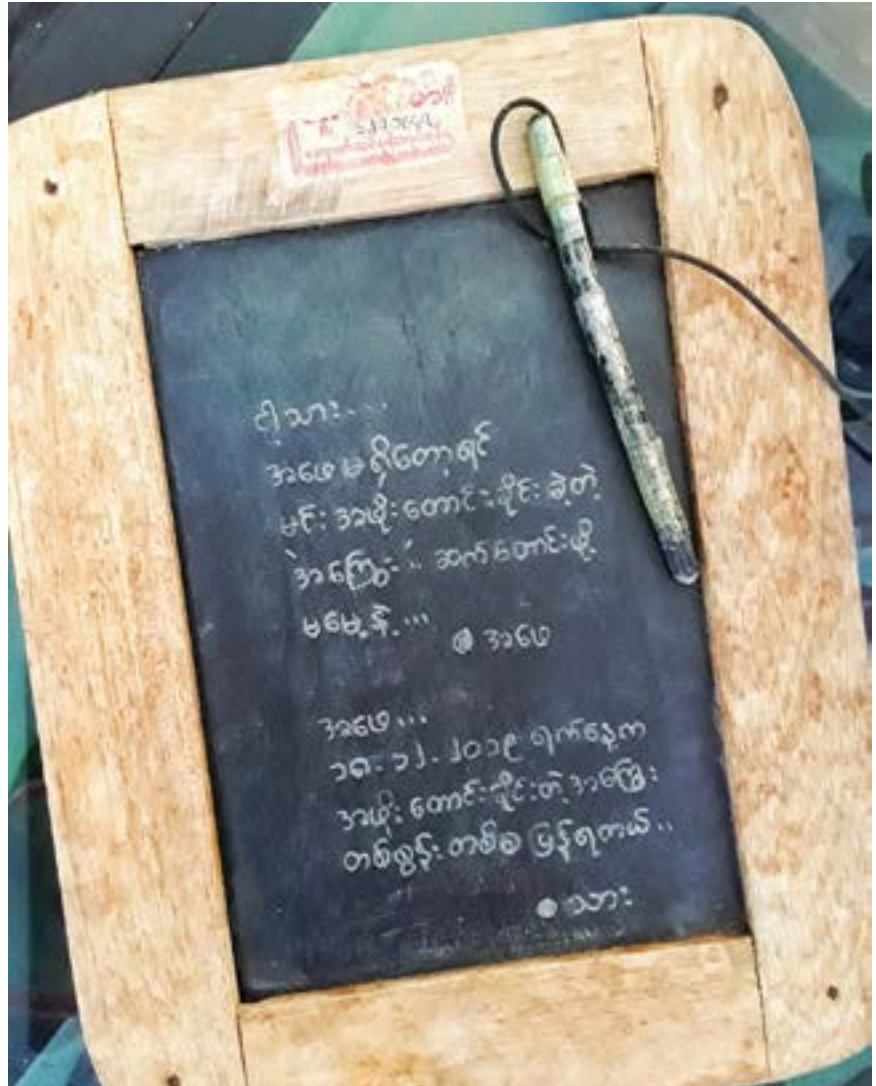 ငါ့သား....
အဖေ မရှိတော့ရင်
မင်း အဖိုး တောင်းခိုင်း ခဲ့တဲ့
အကြွေး .. ဆက်တောင်းဖို့
မမေ့နဲ့...
အဖေ
အဖေ...
၁၈-၁၂-၂၀၁၉ ရက်နေ့က
အဖိုး တောင်းခိုင်းတဲ့ အကြွေး
တစ်စွန်း တစ်စ ပြန်ရတယ်..
သား